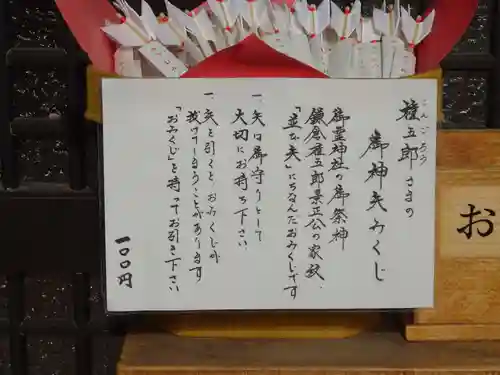 権五郎さまの
ごんごろう
御神矢みくじ
御霊神社の御祭神
鎌倉権五郎景正公の家紋、
「並び矢」にちなんだおみくじです
一、矢は御守りとして
大切にお持ち下さい
一、矢を引くと、おみくじが
抜けてしまうことがあります
「おみくじ」を持ってお引き下さい
一〇〇円
お